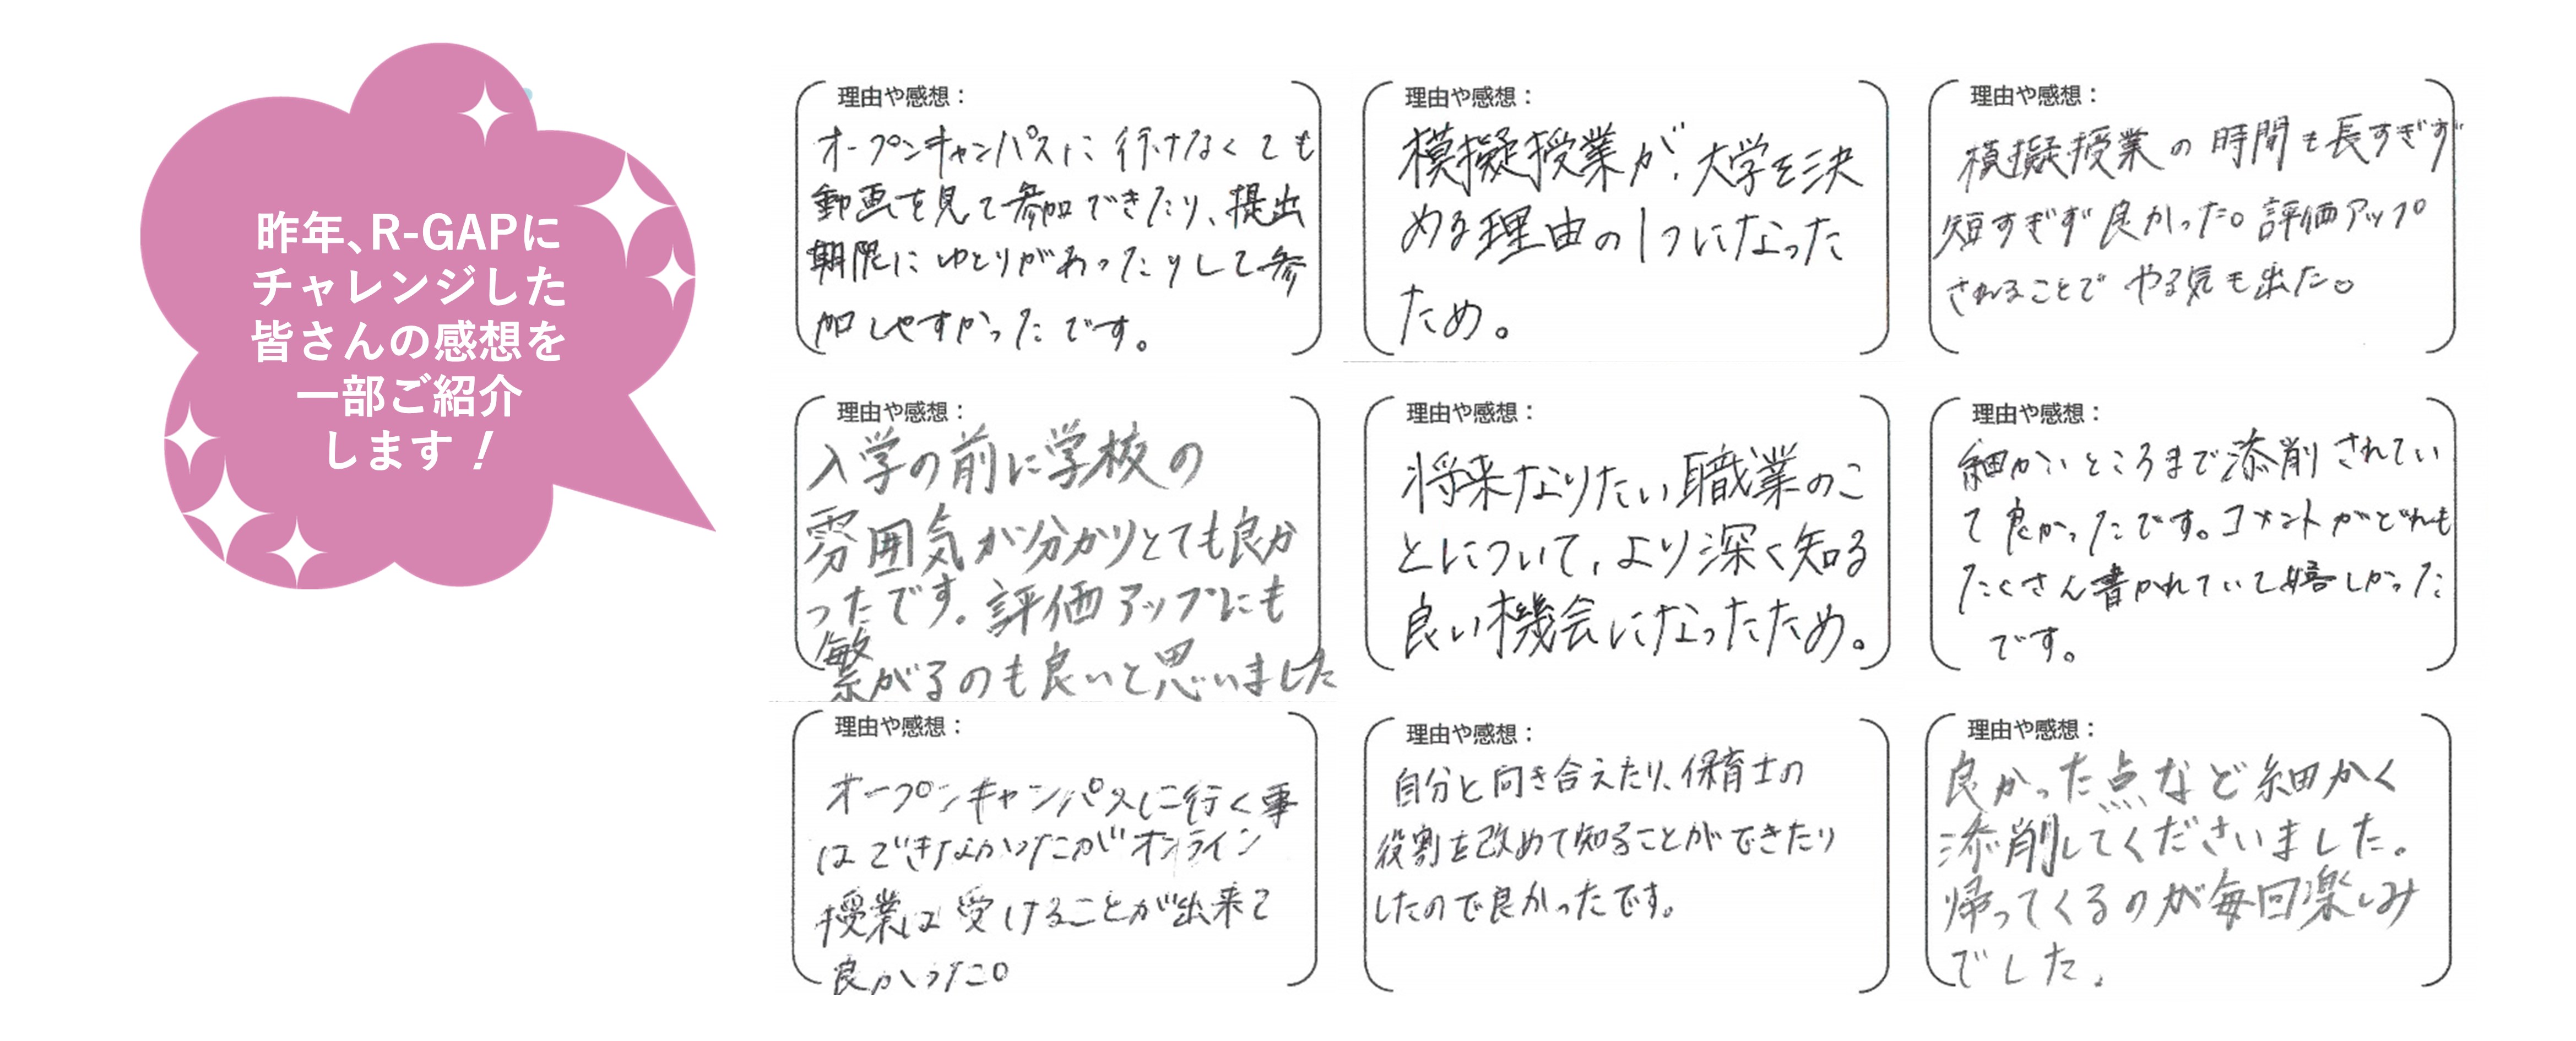 昨年、R-GAPに
チャレンジした
皆さんの感想を
一部ご紹介
します！
理由や感想：
オープンキャンパスに行けなくても
動画を見て参加できたり、提出
期限にゆとりがあったりして参
加しやすかったです。
理由や感想：
模擬授業が、大学を決
める理由の1つになった
ため。
理由や感想：
模擬授業の時間も長すぎず
短すぎず良かった。評価アップ
されることでやる気も出た。
理由や感想：
入学の前に学校の
雰囲気が分かりとても良か
ったです。評価アップにも
繋がるのも良いと思いました
理由や感想：
将来なりたい職業のこ
とについて、より深く知る
良い機会になったため。
理由や感想：
細かいところまで添削されてい
て良かったです。コメントがどれも
たくさん書かれていて嬉しかった
です。
理由や感想：
オープンキャンパスに行く事
はできなかったがオンライン
授業は受けることが出来て
良かった。
理由や感想：
自分と向き合えたり、保育士の
役割を改めて知ることができたり
したので良かったです。
理由や感想：
良かった点など細かく
添削してくださいました。
帰ってくるのが毎回楽しみ
でした。